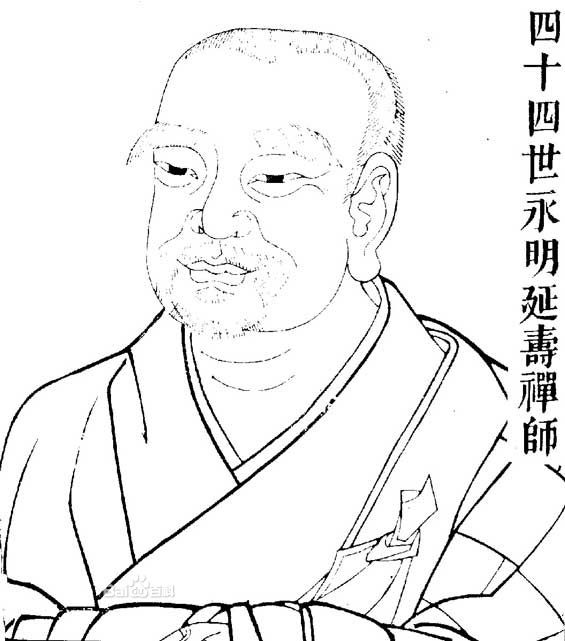 四十四世永明延壽禪師
Bai百科